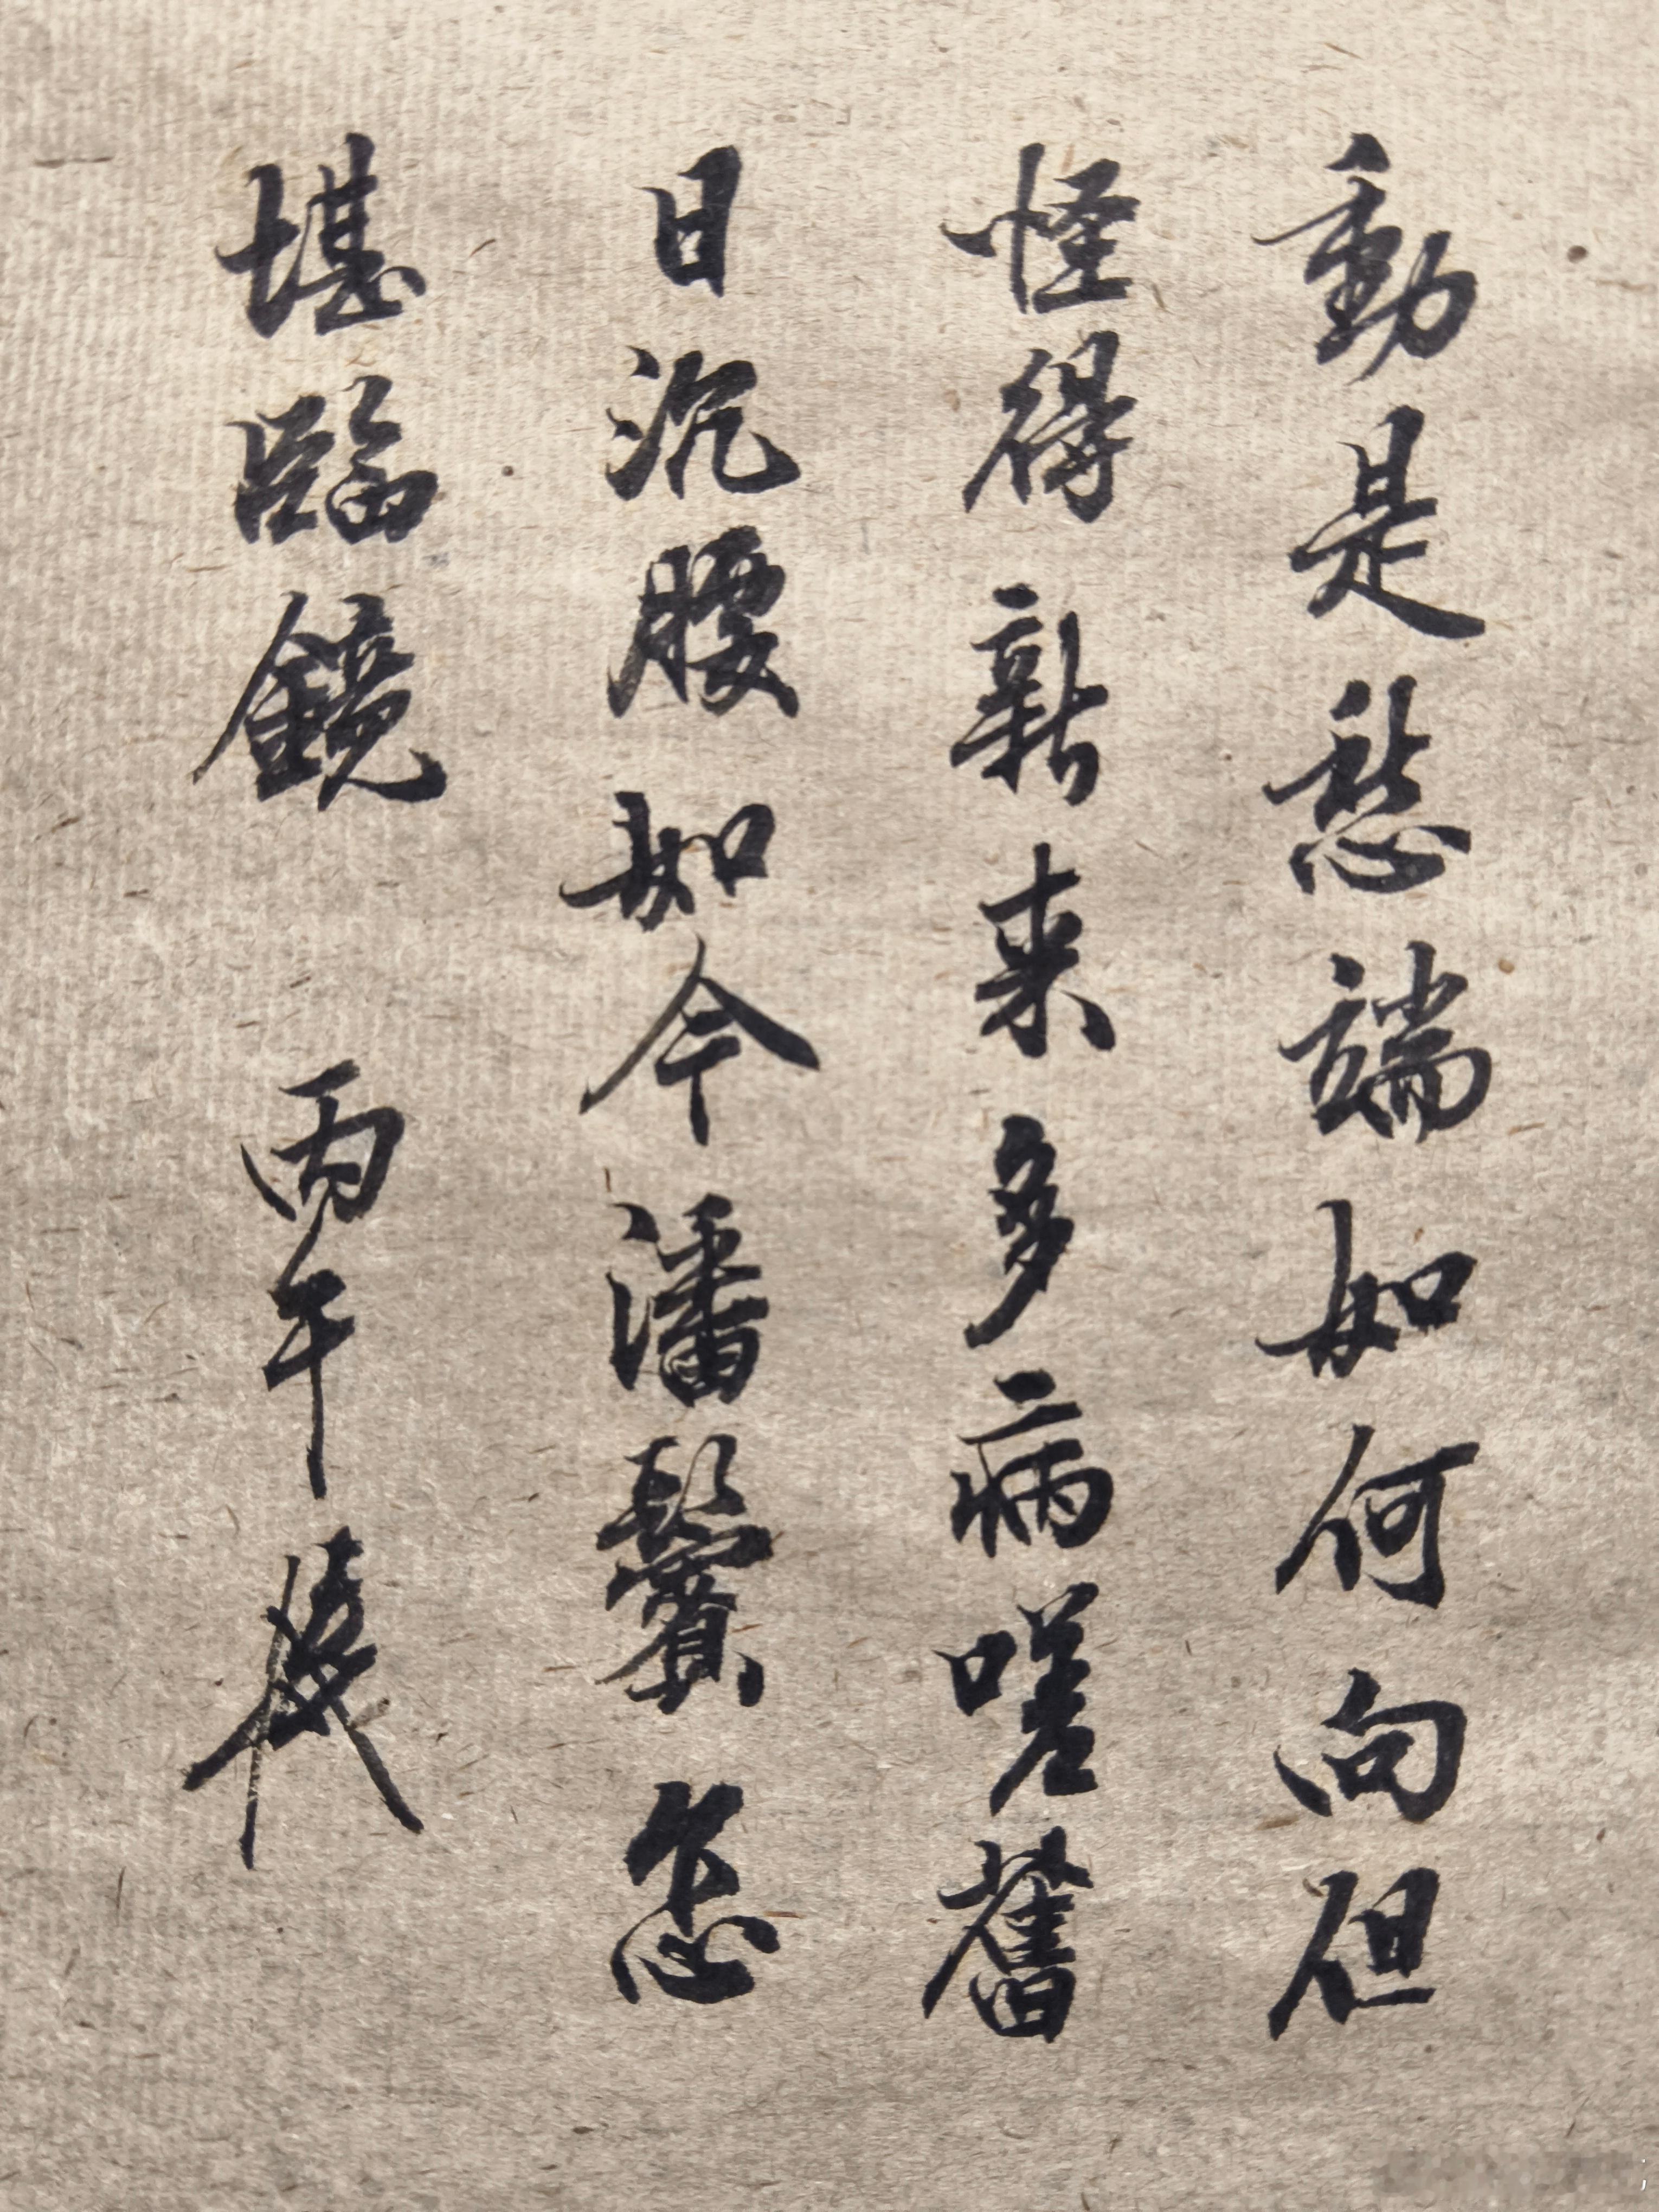 動是愁端如何向但
怪得新来多病嗟舊
日沉腰如今潘鬢怎
堪臨鏡 丙午